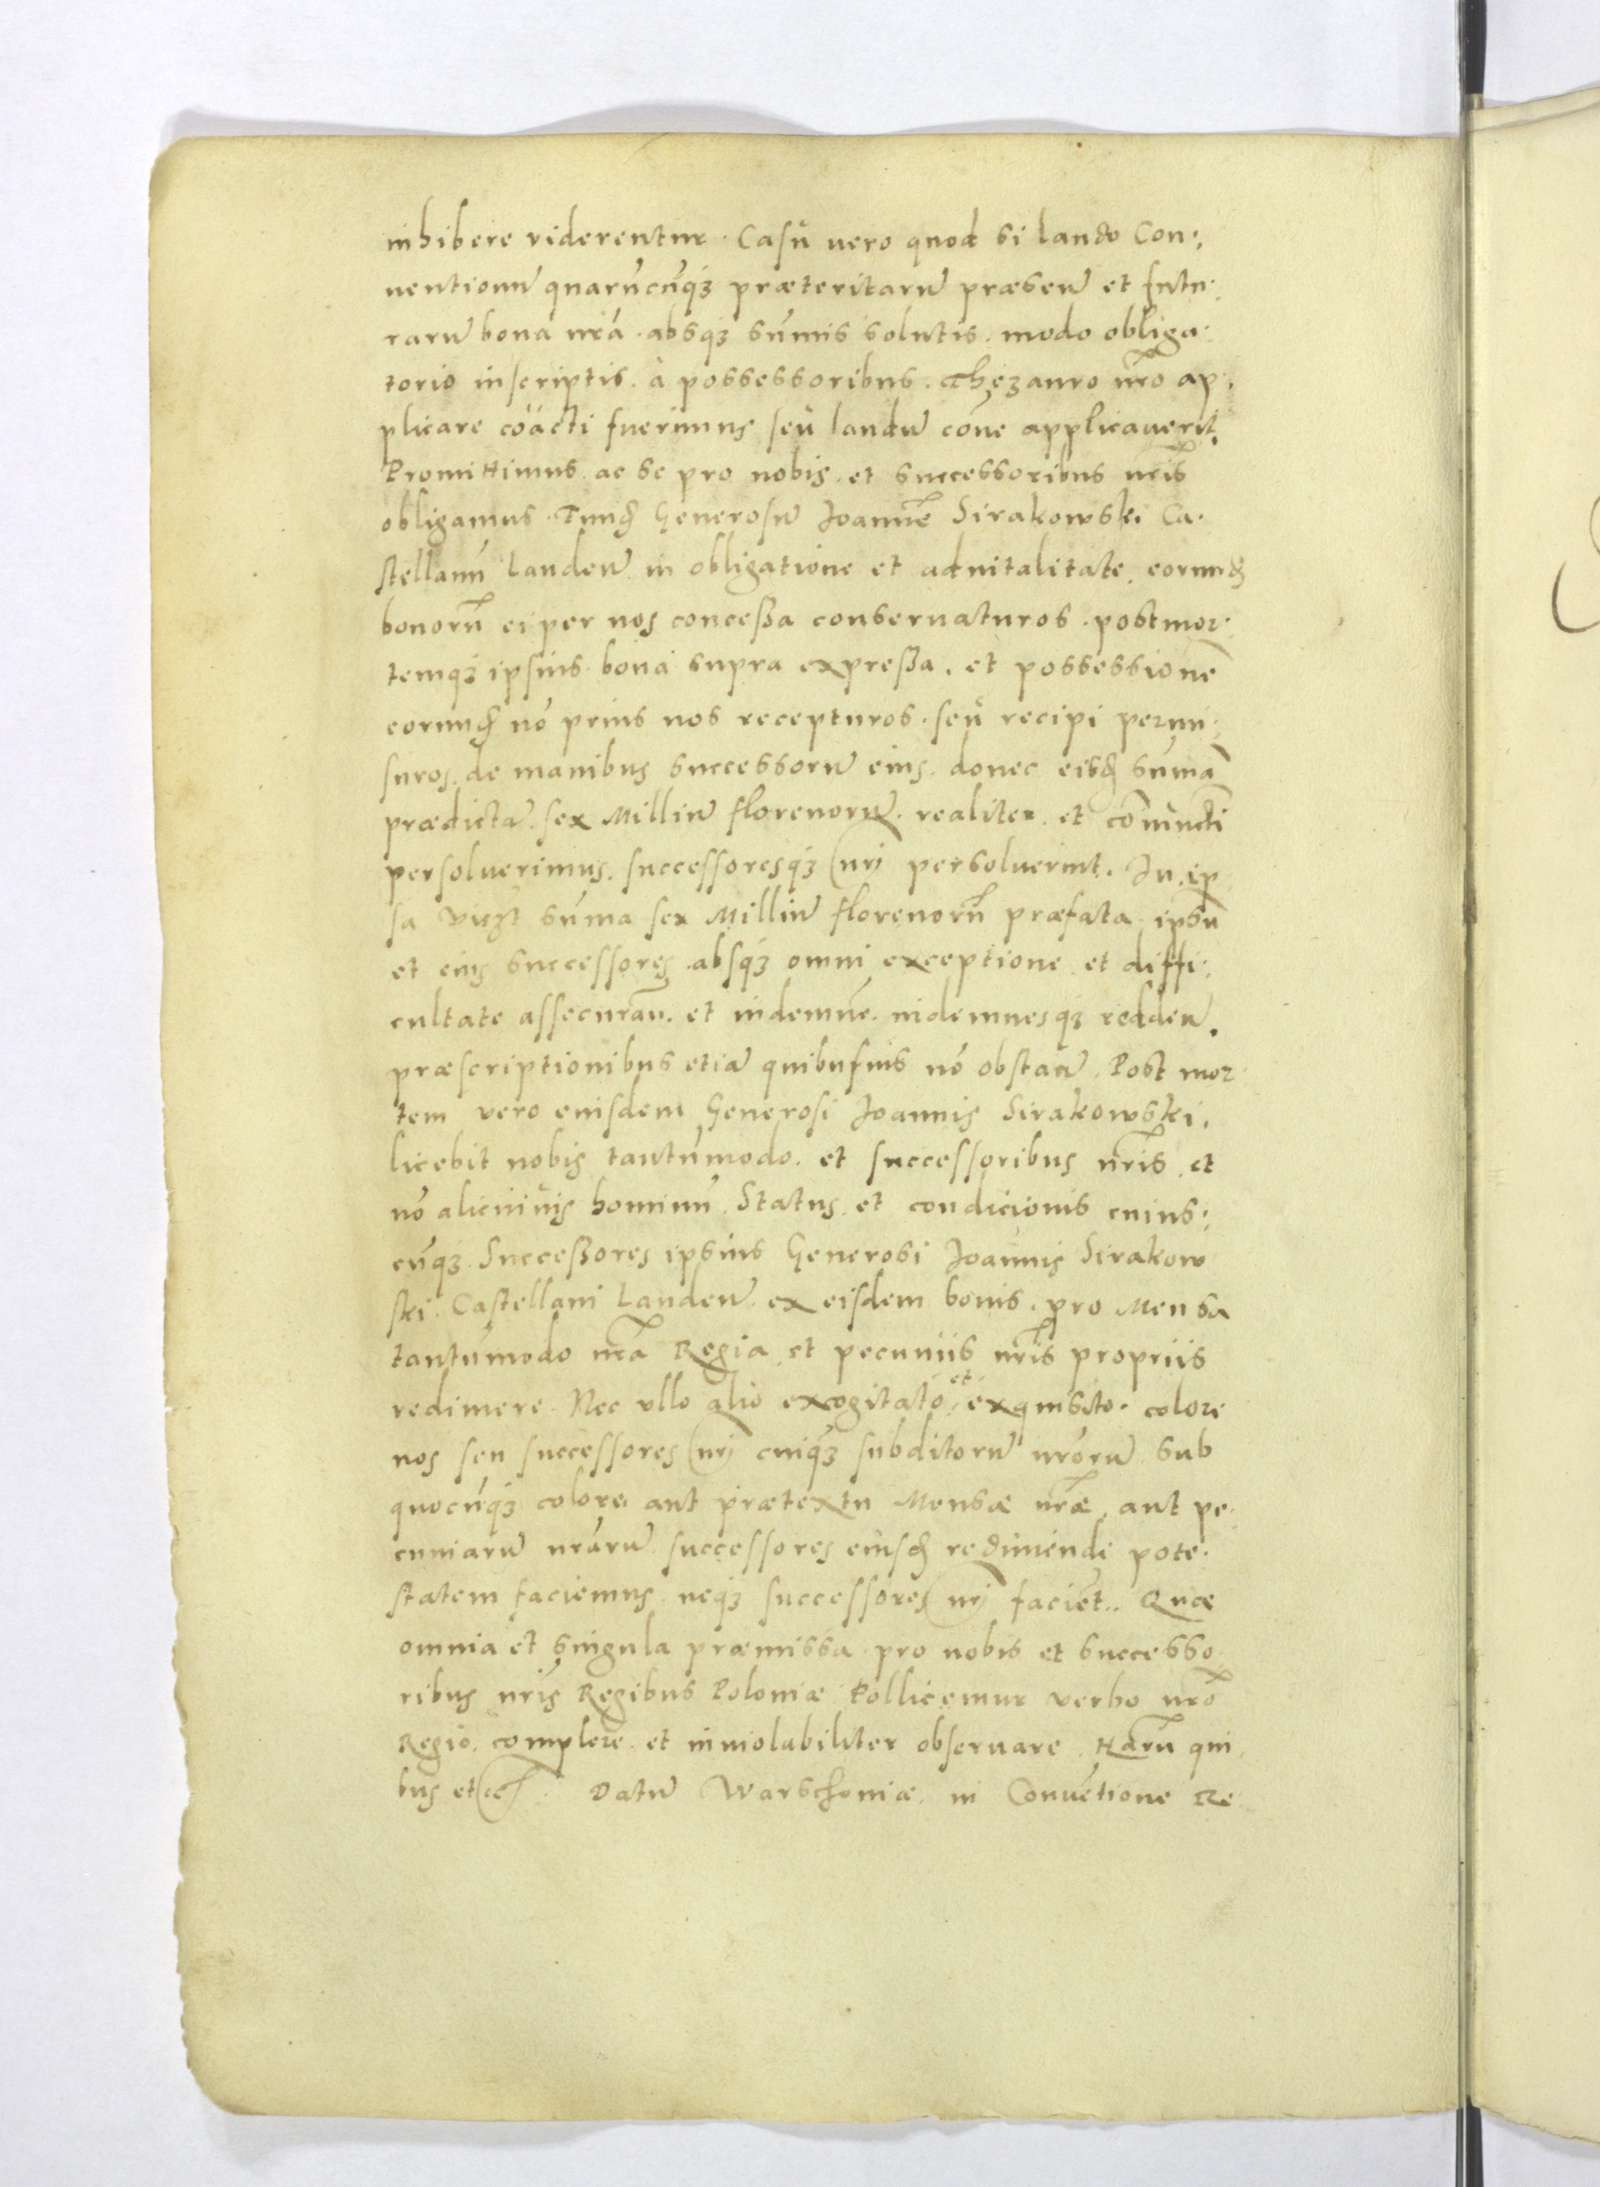 inhibere viderentur. Casu vero quod si laudo Con,
uentionũ quarũcũq₃ præteritarũ præsen̄ et futu,
rarũ bona nr̃a. absq₃ sum̃is solutis. modo obliga,
torio inscriptis. à possessoribus. Thezauro nr̃o ap,
plicare coacti fuerimus seu laudũ cõue applicauerit.
Promittimus ac se pro nobis et successoribus nr̃is
obligamus. Eund̃ Generosũ Joannẽ Sirakowski Ca,
stellanũ Landen̄ in obligatione et aduitalitate, eorund̃
bonorũ ei per nos conceßa conseruaturos. post mor,
temq₃ ipsius bona supra expreßa, et possessionẽ
eorund̃ nõ prius nos recepturos. seu recipi permi,
suros, de manibus successorũ eius. donec eisd̃ sum̃ã
prædictã, sex Milliũ florenorũ. realiter. et coniũctĩ
persoluerimus. successoresq₃ nr̃j persoluerint. In ip,
sa vicz̃t sum̃a sex Milliũ florenorũ præfata ipsũ
et eius successores. absq₃ omni exceptione et diffi,
cultate assecuran̄. et indemnẽ. indemnesq₃ redden̄.
præscriptionibus etiã quibusuis nõ obstan̄. Post mor,
tem vero eiusdem Generosi Joannis Sirakowski,
licebit nobis tantũmodo. et successoribus nr̃is, et
nõ alicui uis hominũ, Status, et condicionis cuius,
cũq₃. Succeßores ipsius Generosi Joannis Sirakow
ski. Castellani Landen̄. ex eisdem bonis, pro Mensa
tantũmodo nr̃a Regia et pecuniis nr̃is propriis
redimere. Nec vllo alio excogitato et exquisito. colore
nos seu successores nr̃j cuiq₃ subditorũ nr̃orũ sub
quocũq₃ colore aut prætextu Mensæ nr̃æ, aut pe,
cuniarũ nr̃arũ successores eiusd̃ redimendi pote,
statem faciemus neq₃ successores nr̃j faciẽt.. Quæ
omnia et singula præmissa pro nobis et successo,
ribus nr̃is Regibus Poloniæ Pollicemur verbo nr̃o
Regio, complere et inuiolabiliter obseruare. Harũ qui,
bus etc̃. Datũ Warschouiæ. in Conuẽtione Re